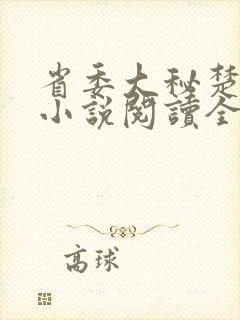 省委大秘楚
小說閱讀全
高球